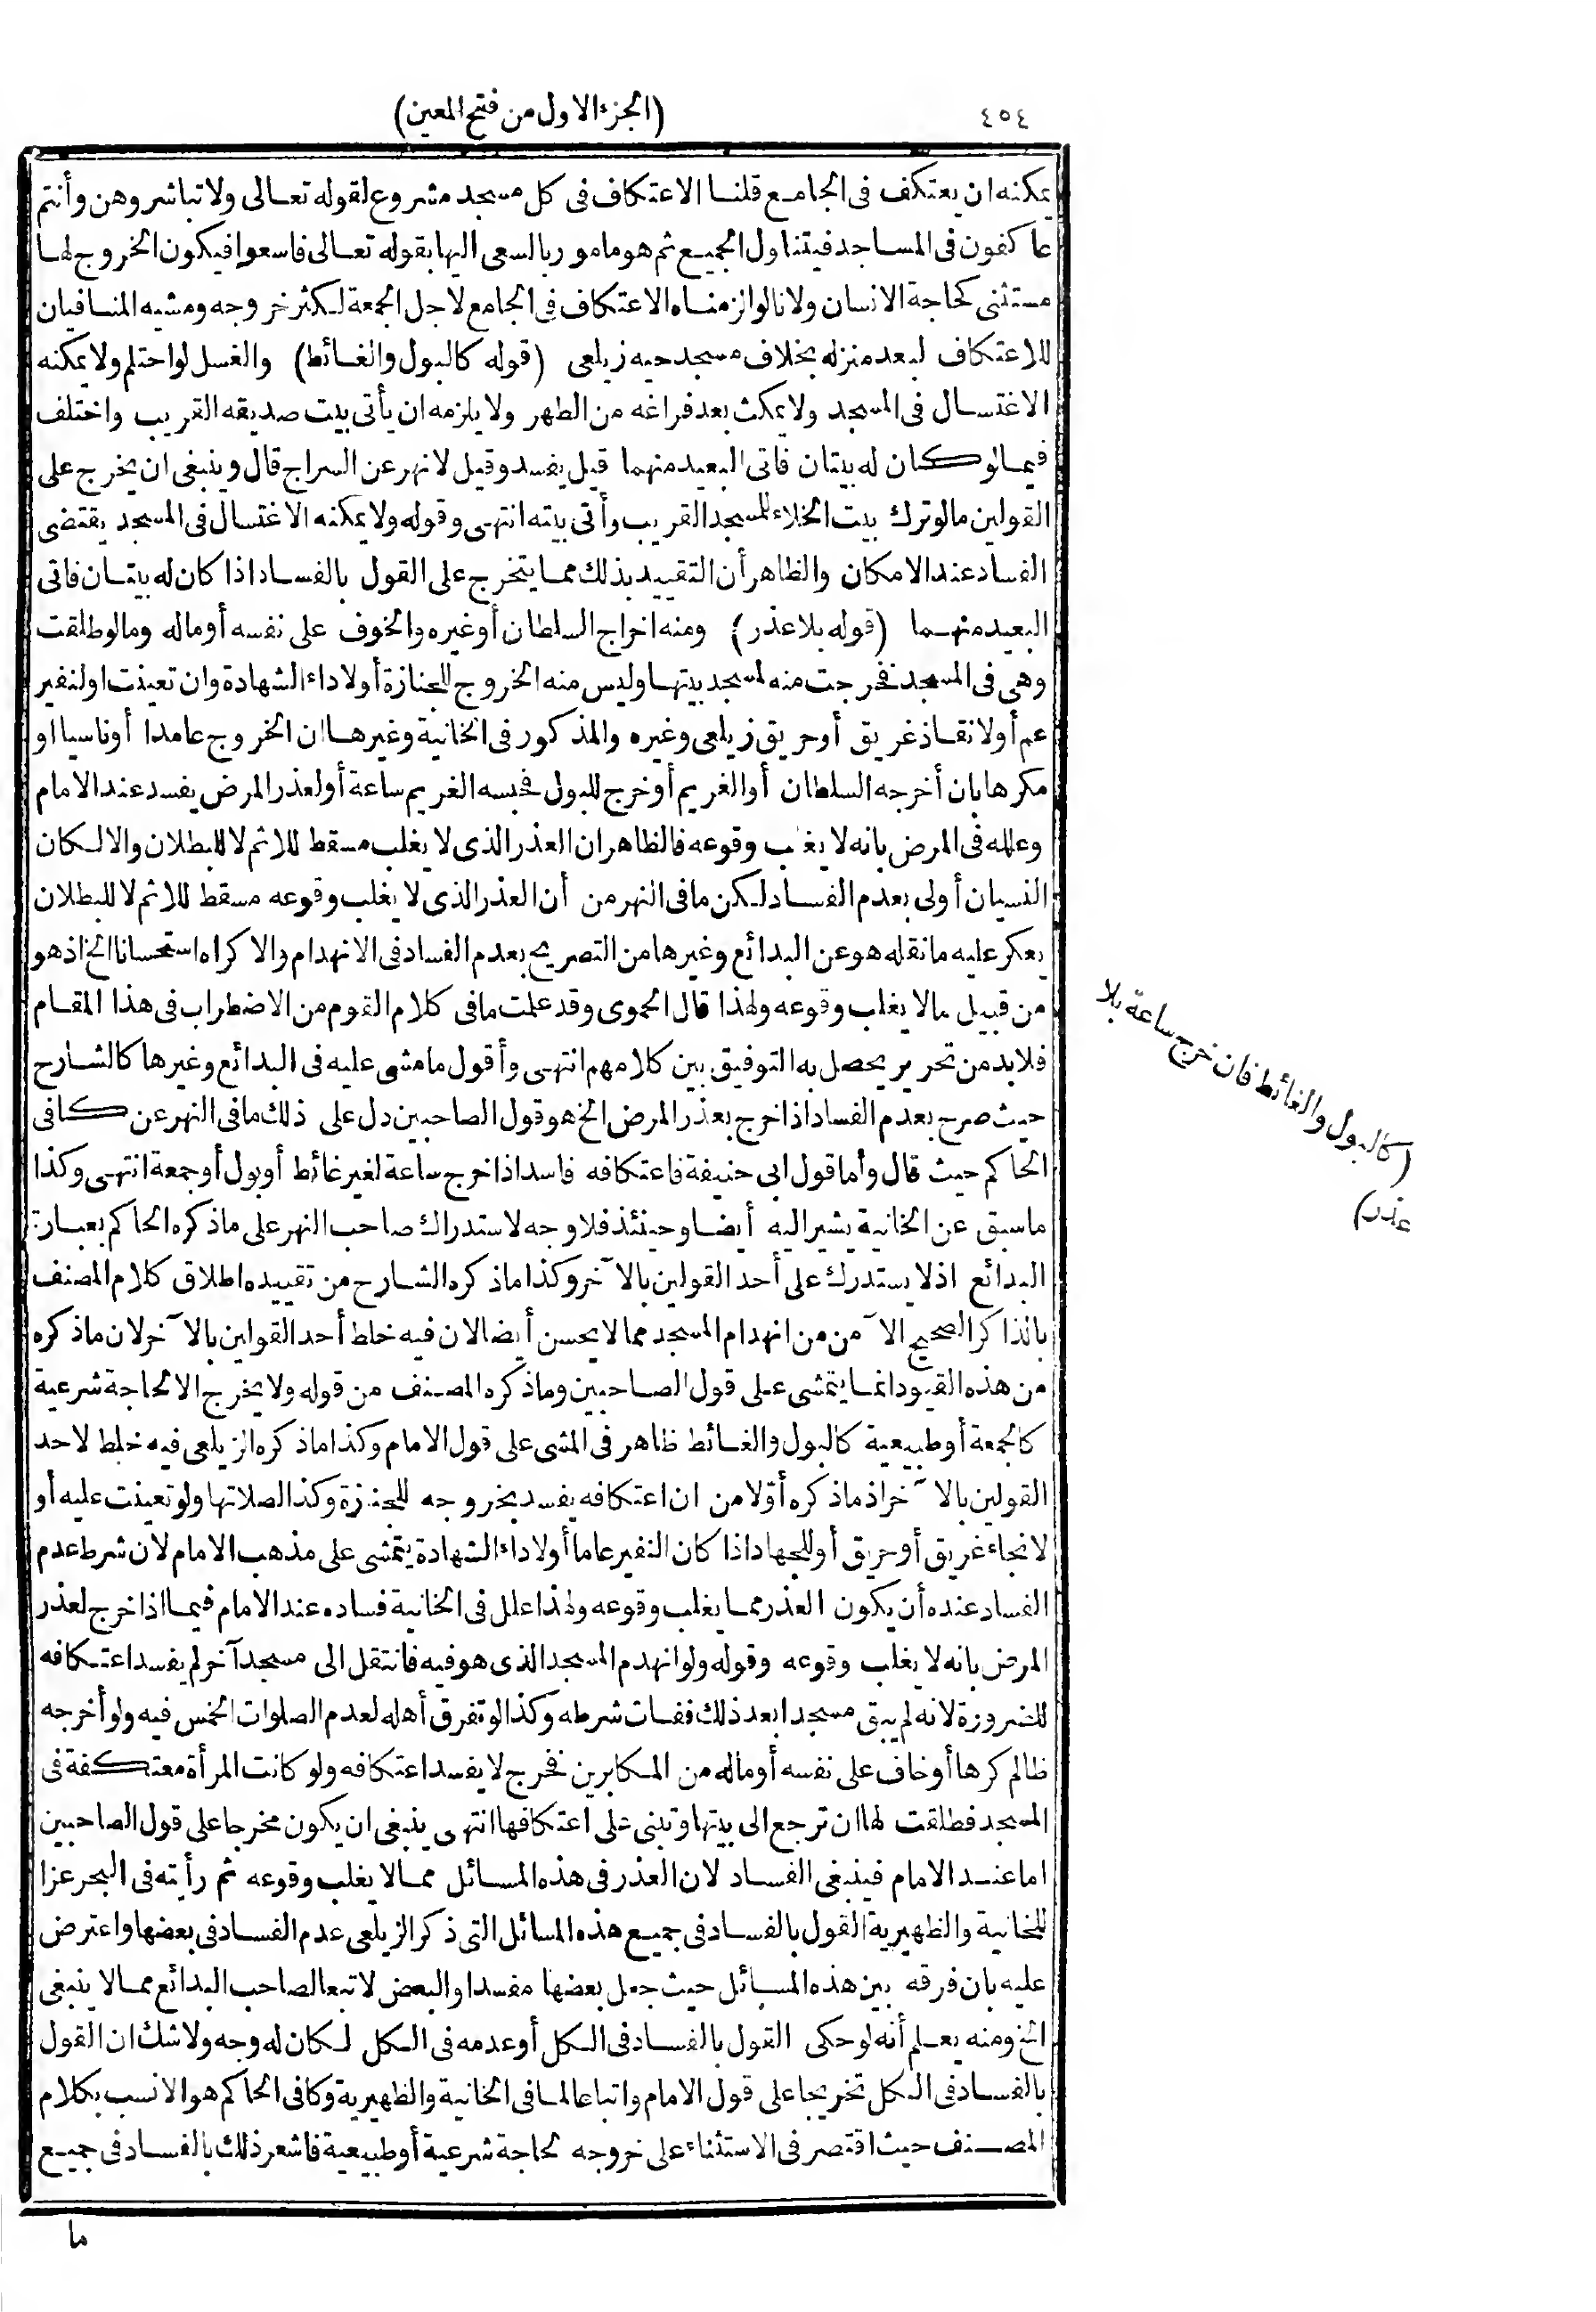 ٤٥٤
(الجزء الاول من فتح المعين)
يمكنه ان يعتكف فى الجامع قلنا الاعتكاف فى كل مسجد مشروع لقوله تعالى ولا تباشروهن وأنتم
عاكفون فى المساجد فيتناول الجميع ثم هو مامور بالسعى اليها بقوله تعالى فاسعوا فيكون الخروج لها
مستثنى كحاجة الانسان ولانا لو الزمناه الاعتكاف فى الجامع لاجل الجمعة لكثر خروجه ومشيه المنافيان
للاعتكاف لبعد منزله بخلاف مسجد حيه زيلعى (قوله كالبول والغائط) والغسل لو احتلم ولا يمكنه
الاغتسال فى المسجد ولا يمكث بعد فراغه من الطهر ولا يلزمه ان يأتى بيت صديقه القريب واختلف
فيما لو كان له بيتان فاتى البعيد منهما قيل يفسد وقيل لا نهر عن السراج قال وينبغى ان يخرج على
القولين مالو ترك بيت الخلاء للمسجد القريب وأتى بيته انتهى وقوله ولا يمكنه الاغتسال فى المسجد يقتضى
الفساد عند الامكان والظاهر أن التقييد بذلك مما يتخرج على القول بالفساد اذا كان له بيتان فاتى
البعيد منهما (قوله بلا عذر) ومنه اخراج السلطان أو غيره والخوف على نفسه أو ماله ومالو طلقت
وهى فى المسجد فخرجت منه لمسجد بيتها وليس منه الخروج للجنازة أو لاداء الشهادة وان تعينت او لنفير
عم أو لانقاذ غريق أو حريق زيلعى وغيره والمذكور فى الخانية وغيرها ان الخروج عامدا أو ناسيا او
مكرها بان أخرجه السلطان أو الغريم أو خرج للبول فحبسه الغريم ساعة أو لعذر المرض يفسد عند الامام
وعلله فى المرض بانه لا يغلب وقوعه فالظاهر ان العذر الذى لا يغلب مسقط للاثم لا للبطلان والا لكان
النسيان أولى بعدم الفساد لكن ما فى النهر من أن العذر الذى لا يغلب وقوعه مسقط للاثم لا للبطلان
يعكر عليه ما نقله هو عن البدائع وغيرها من التصريح بعدم الفساد فى الانهدام والاكراه استحسانا الخ اذ هو
من قبيل مالا يغلب وقوعه ولهذا قال الحموى وقد علمت ما فى كلام القوم من الاضطراب فى هذا المقام
فلابد من تحرير يحصل به التوفيق بين كلامهم انتهى وأقول ما مشى عليه فى البدائع وغيرها كالشارح
حيث صرح بعدم الفساد اذا خرج بعذر المرض الخ هو قول الصاحبين دل على ذلك ما فى النهر عن كافى
الحاكم حيث قال وأما قول ابى حنيفة فاعتكافه فاسد اذا خرج ساعة لغير غائط أو بول أو جمعة انتهى وكذا
ما سبق عن الخانية يشير اليه أيضا وحينئذ فلا وجه لاستدراك صاحب النهر على ما ذكره الحاكم بعبارة
البدائع اذ لا يستدرك على أحد القولين بالآخر وكذا ما ذكره الشارح من تقييده اطلاق كلام المصنف
بالذاكر الصحيح الآمن من انهدام المسجد مما لا يحسن أيضا لان فيه خلط أحد القولين بالآخر لان ما ذكره
من هذه القيود انما يتمشى على قول الصاحبين وما ذكره المصنف من قوله ولا يخرج الا لحاجة شرعية
كالجمعة أو طبيعية كالبول والغائط ظاهر فى المشى على قول الامام وكذا ما ذكره الزيلعى فيه خلط لاحد
القولين بالآخر اذ ما ذكره أوّلا من ان اعتكافه يفسد بخروجه للجنازة وكذا لصلاتها ولو تعينت عليه أو
لانجاء غريق أو حريق أو للجهاد اذا كان النفير عاما أو لاداء الشهادة يتمشى على مذهب الامام لان شرط عدم
الفساد عنده أن يكون العذر مما يغلب وقوعه ولهذا علل فى الخانية فساده عند الامام فيما اذا خرج لعذر
المرض بانه لا يغلب وقوعه وقوله ولو انهدم المسجد الذى هو فيه فانتقل الى مسجد آخر لم يفسد اعتكافه
للضرورة لانه لم يبق مسجدا بعد ذلك ففات شرطه وكذا لو تفرق أهله لعدم الصلوات الخمس فيه ولو أخرجه
ظالم كرها أو خاف على نفسه أو ماله من المكابرين فخرج لا يفسد اعتكافه ولو كانت المرأة معتكفة فى
المسجد فطلقت لها ان ترجع الى بيتها وتبنى على اعتكافها انتهى ينبغى ان يكون مخرجا على قول الصاحبين
اما عند الامام فينبغى الفساد لان العذر فى هذه المسائل مما لا يغلب وقوعه ثم رأيته فى البحر عزا
للخانية والظهيرية القول بالفساد فى جميع هذه المسائل التى ذكر الزيلعى عدم الفساد فى بعضها واعترض
عليه بان فرقه بين هذه المسائل حيث جعل بعضها مفسدا والبعض لا تبعا لصاحب البدائع مما لا ينبغى
الخ ومنه يعلم أنه لو حكى القول بالفساد فى الكل أو عدمه فى الكل لكان له وجه ولا شك ان القول
بالفساد فى الكل تخريجا على قول الامام واتباعا لما فى الخانية والظهيرية وكافى الحاكم هو الانسب بكلام
المصنف حيث اقتصر فى الاستثناء على خروجه لحاجة شرعية أو طبيعية فاشعر ذلك بالفساد فى جميع
ما
(كالبول والغائط فان خرج ساعة بلا
عذر)